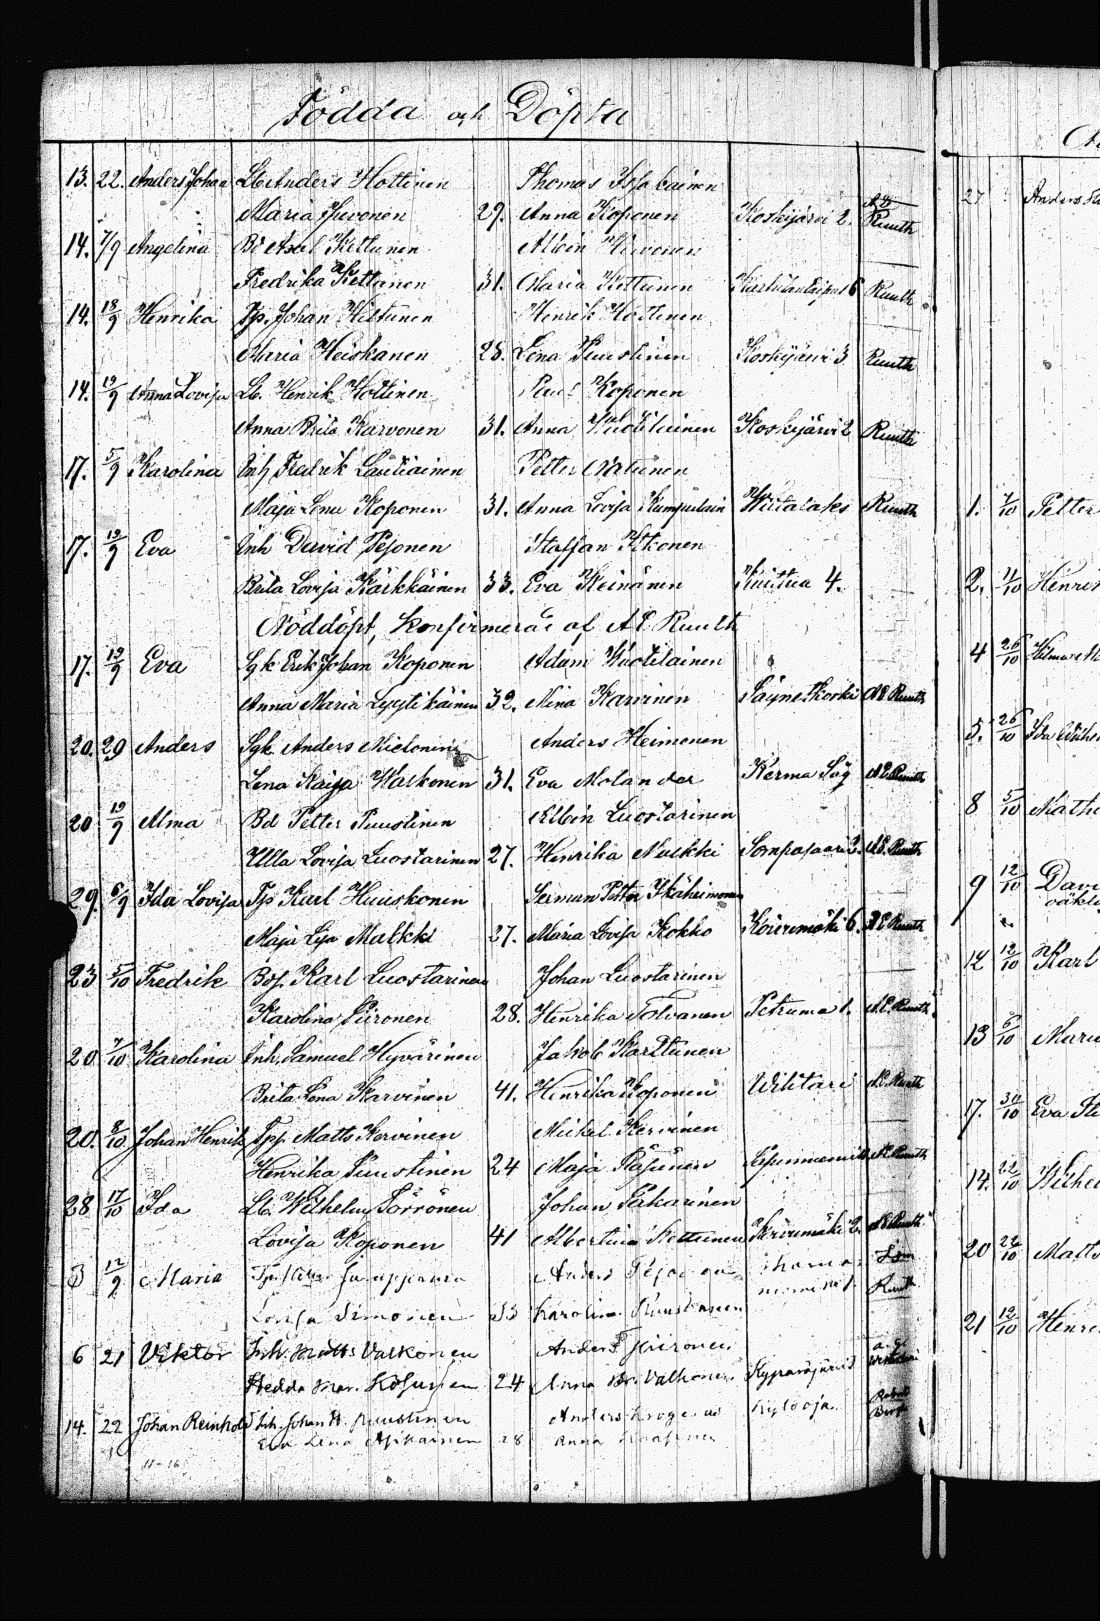 Födda och Döpta
13. 22. Anders Johan Lb Anders Hottinen Thomas Issakainen
Maria Hyvönen 29. Anna Koponen Koskijärvi 2. Ruuth
14. 7/9 Angelina Bd Axel Kettunen Albin Hirvonen
Fredrika Kettunen 31. Maria Kettunen 6 Ruuth
14. 18/9 Henrika Tp. Johan Hiltunen Henrik Hottinen
Maria Heiskanen 28. Lena Puustinen Koskijärvi 3 Ruuth
14. 19/9 Anna Lovisa Lb. Henrik Hottinen Paul Koponen
Anna Brita Karvonen 31. Anna Wuotilainen Koskijärvi 2 Ruuth
17. 5/9 Karolina Inh Fredrik Lautiainen Petter Natunen
Maja Lena Koponen 31. Anna Lovisa Kumpulain Wiitalaks Ruuth
17. 19/9 Eva Inh David Pesonen Staffan Itkonen
Brita Lovisa Kärkkäinen 33. Eva Heinänen Kuittua 4.
Nöddöpt, konfirmerad af A E Ruuth
17. 19/9 Eva Sgk Erik Johan Koponen Adam Wuotilainen
Anna Maria Lyytikäinen 32. Mina Karvinen Säynetkoski A E Ruuth
20. 29 Anders Sgk Anders Mielonen Anders Heimonen
Lena Kaisa Waskonen 31. Eva Molander Kerma Såg A E Ruuth
20 19/9 Alma Bd Petter Puustinen Albin Luostarinen
Ulla Lovisa Luostarinen 27. Henrika Nulkki Sompasaari 2. A E. Ruuth
29. 6/9 Ida Lovisa Tp Karl Huuskonen Petter Ikäheimonen
Maja Lisa Malkki 27. Maria Lovisa Kokko 6. A E Ruuth
23 5/10 Fredrik Bos. Karl Luostarinen Johan Luostarinen
Karolina Piironen 28. Henrika Tolvanen Petruma 1. A. E. Ruuth
20 7/10 Karolina Inh. Samuel Hyvärinen Jakob Karttunen
Brita Lena Karvinen 41. Henrika Koponen Wihtari A. E. Ruuth
20. 8/10 Johan Henrik Tpp Matts Kervinen Mickel Kervinen
Henrika Puustinen 24 Maja Räsänen A E Ruuth
28 17/10 Ida Lb. Wilhelm Sörrönen Johan Pakarinen
Lovisa Koponen 41 Albertina Kettunen 2. A E Ruuth
3 12/9 Maria Anders
Lovisa Simonen 33 Karolina Ruuth
6 21 Viktor Inh. Matts Valkonen Anders Piironen
Hedda Mar. Kosunen 24 Anna Br. Valkonen Kypäräjärvi
14. 22 Johan Reinhold Inh. Johan H. Puustinen Anders
Eva Lena 28 Anna
27 Anders
1. 7/10 Petter
2. 11/10 Henrik
4 26/10 Hilma
5. 26/10 Ida
8 5/10
9 12/10
12 12/10 Karl
13 6/10
17. 30/10 Eva
14. 22/10
20 23/10 Matts
21 12/10